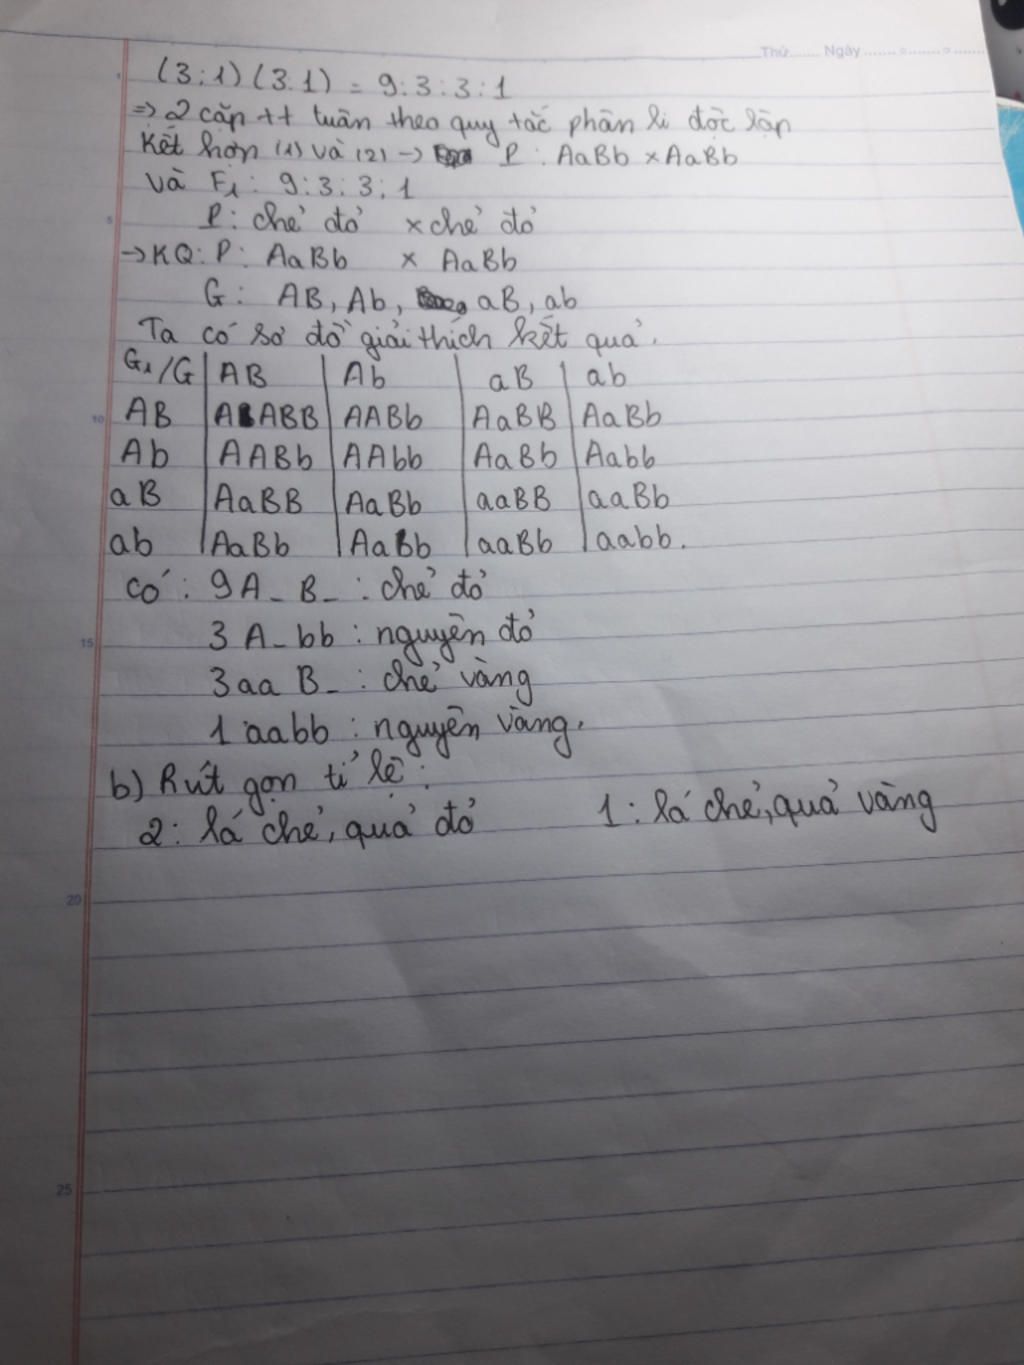 Thứ ....... Ngày ....... o ....... o .......
(3:1)(3.1) = 9:3:3:1
=> 2 cặp tt tuân theo quy tắc phân li độc lập
Kết hợp (1) và (2) -> P : AaBb x AaBb
và F1 : 9:3:3:1
5
P: chẻ đỏ x chẻ đỏ
-> KQ: P: AaBb x AaBb
G: AB, Ab, aB, ab
Ta có sơ đồ giải thích kết quả.
G1/G AB Ab aB ab
10 AB AABB AABb AaBB AaBb
Ab AABb AAbb AaBb Aabb
aB AaBB AaBb aaBB aaBb
ab AaBb AaBb aaBb aabb.
có : 9A_B_ : chẻ đỏ
15 3 A_bb : nguyên đỏ
3 aa B_ : chẻ vàng
1 aabb : nguyên vàng.
b) Rút gọn tỉ lệ :
2: lá chẻ, quả đỏ 1 : lá chẻ, quả vàng
20
25